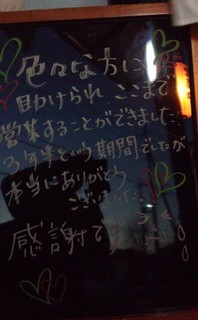 色々な方に
助けられ、ここまで
営業することができました。
3年半という期間でしたが
本当にありがとう
ございました。
感謝で